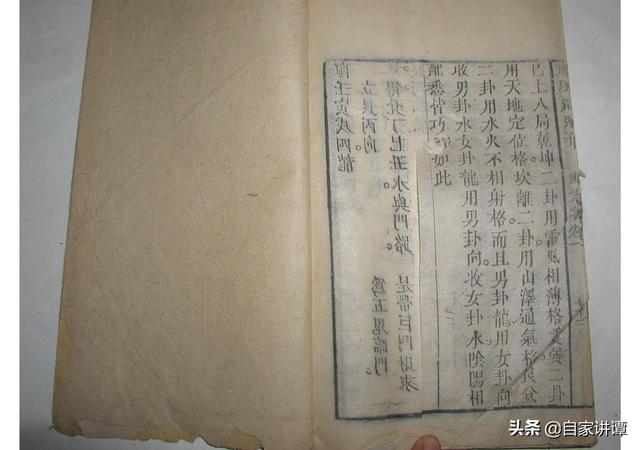 已上八局乾坤二卦用雷風相薄格震巽二卦
用天地定位格坎離二卦用山澤通氣格艮兌
二卦用水火不相射格而且男卦龍用女卦向
收男卦水女卦龍用男卦向收女卦水陰陽相
配悉皆巧如此
得兌丁巳丑水與門路。是帶巨門財來
立艮丙向 爲五鬼臨門。
壬寅戌四龍
头条 @自家讲谭